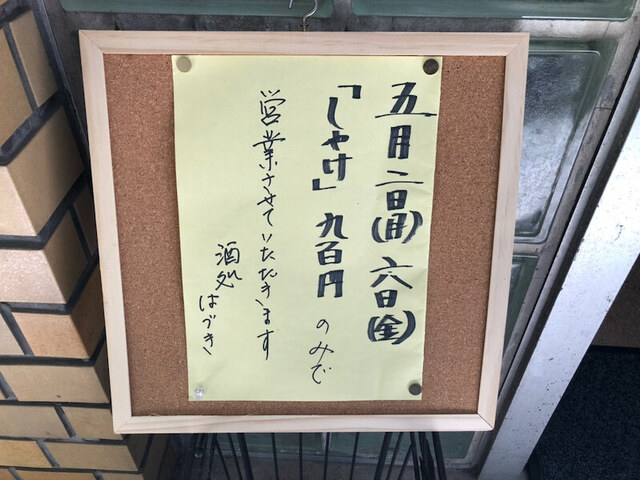 五月二日(月)六日(金)
「しゃけ」九百円のみで
営業させていただきます
酒処
はづき